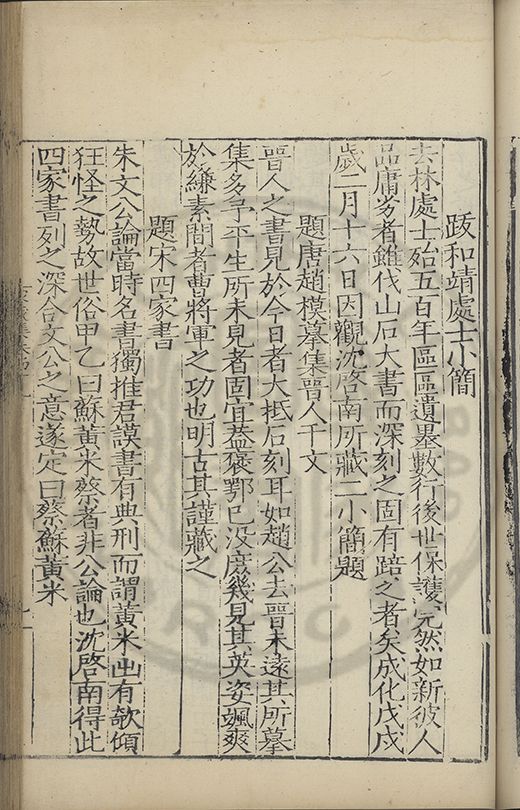 跋和靖處士小簡
去林處士殆五百年區區遺墨數行後世保護完然如新彼人
品庸劣者雖伐山石大書而深刻之固有踣之者矣成化戊戌
歲二月十六日因觀沈啓南所藏二小簡題
題唐趙模摹集晉人千文
晉人之書見於今日者大抵石刻耳如趙公去晉未遠其所摹
集多予平生所未見者固宜葢褒鄂已没庶幾見其英姿颯爽
於縑素間者曹將軍之功也明古其謹藏之
題宋四家書
朱文公論當時名書獨推君謨書有典刑而謂黃米出有欹傾
狂怪之勢故世俗甲乙曰蘇黃米蔡者非公論也沈啓南得此
四家書列之深合文公之意遂定曰蔡蘇黃米